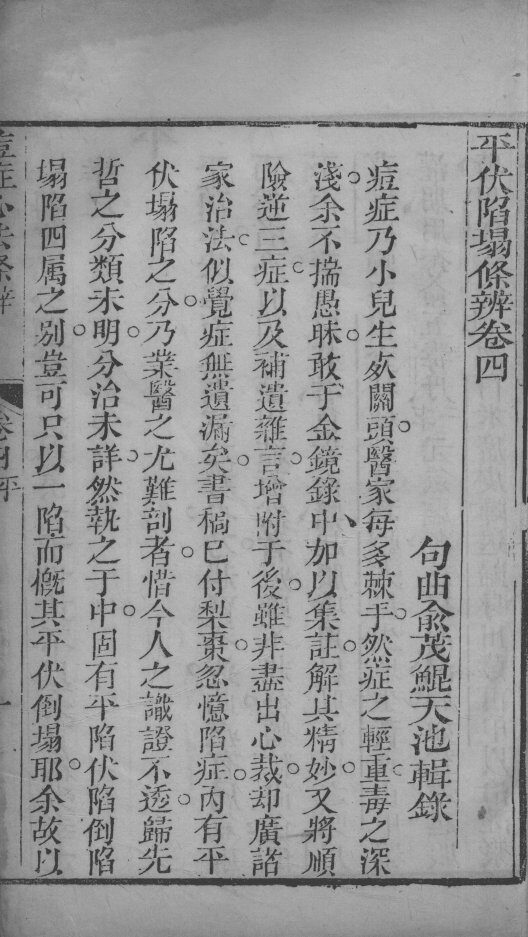 平伏陷塌條辨卷四
句曲俞茂鯤天池輯錄
痘症乃小兒生死關頭醫家每多棘手然症之輕重毒之深
淺余不揣愚昧敢于金鏡錄中加以集註解其精妙又將順
險逆三症以及補遺雜言增附于後雖非盡出心裁却廣諸
家治法似覺症無遺漏矣書稿已付梨棗忽憶陷症內有平
伏塌陷之分乃業醫之尤難剖者惜今人之識證不透歸先
哲之分類未明分治未詳然執之于中固有平陷伏陷倒陷
塌陷四属之别豈可只以一陷而慨其平伏倒塌耶余故以
痘症心法條辨
卷四平
一